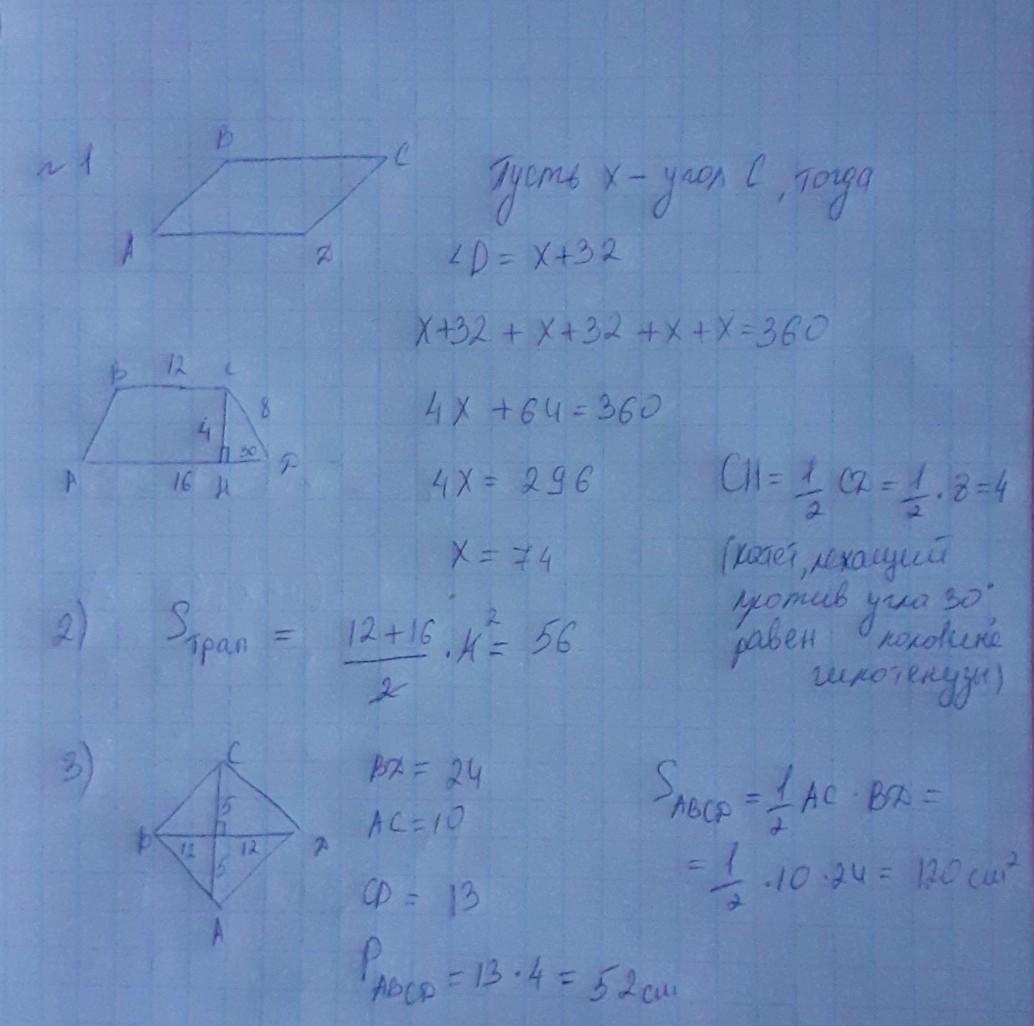 №1
B
C
A
D
Пусть x – угол C, тогда
∠D = x+32
x+32 + x+32 + x + x = 360
4x + 64 = 360
4x = 296
x = 74
B 12 C
8
4
30
A 16 H D
CH = 1/2 CD = 1/2 · 8 = 4
(катет, лежащий
против угла 30°
равен половине
гипотенузы)
2) Sтрап = (12+16)/2 · 4² = 56
3)
C
5
B 12 12 D
5
A
BD = 24
AC = 10
CD = 13
P ABCD = 13 · 4 = 52 cm
S ABCD = 1/2 AC · BD =
= 1/2 · 10 · 24 = 120 cm²